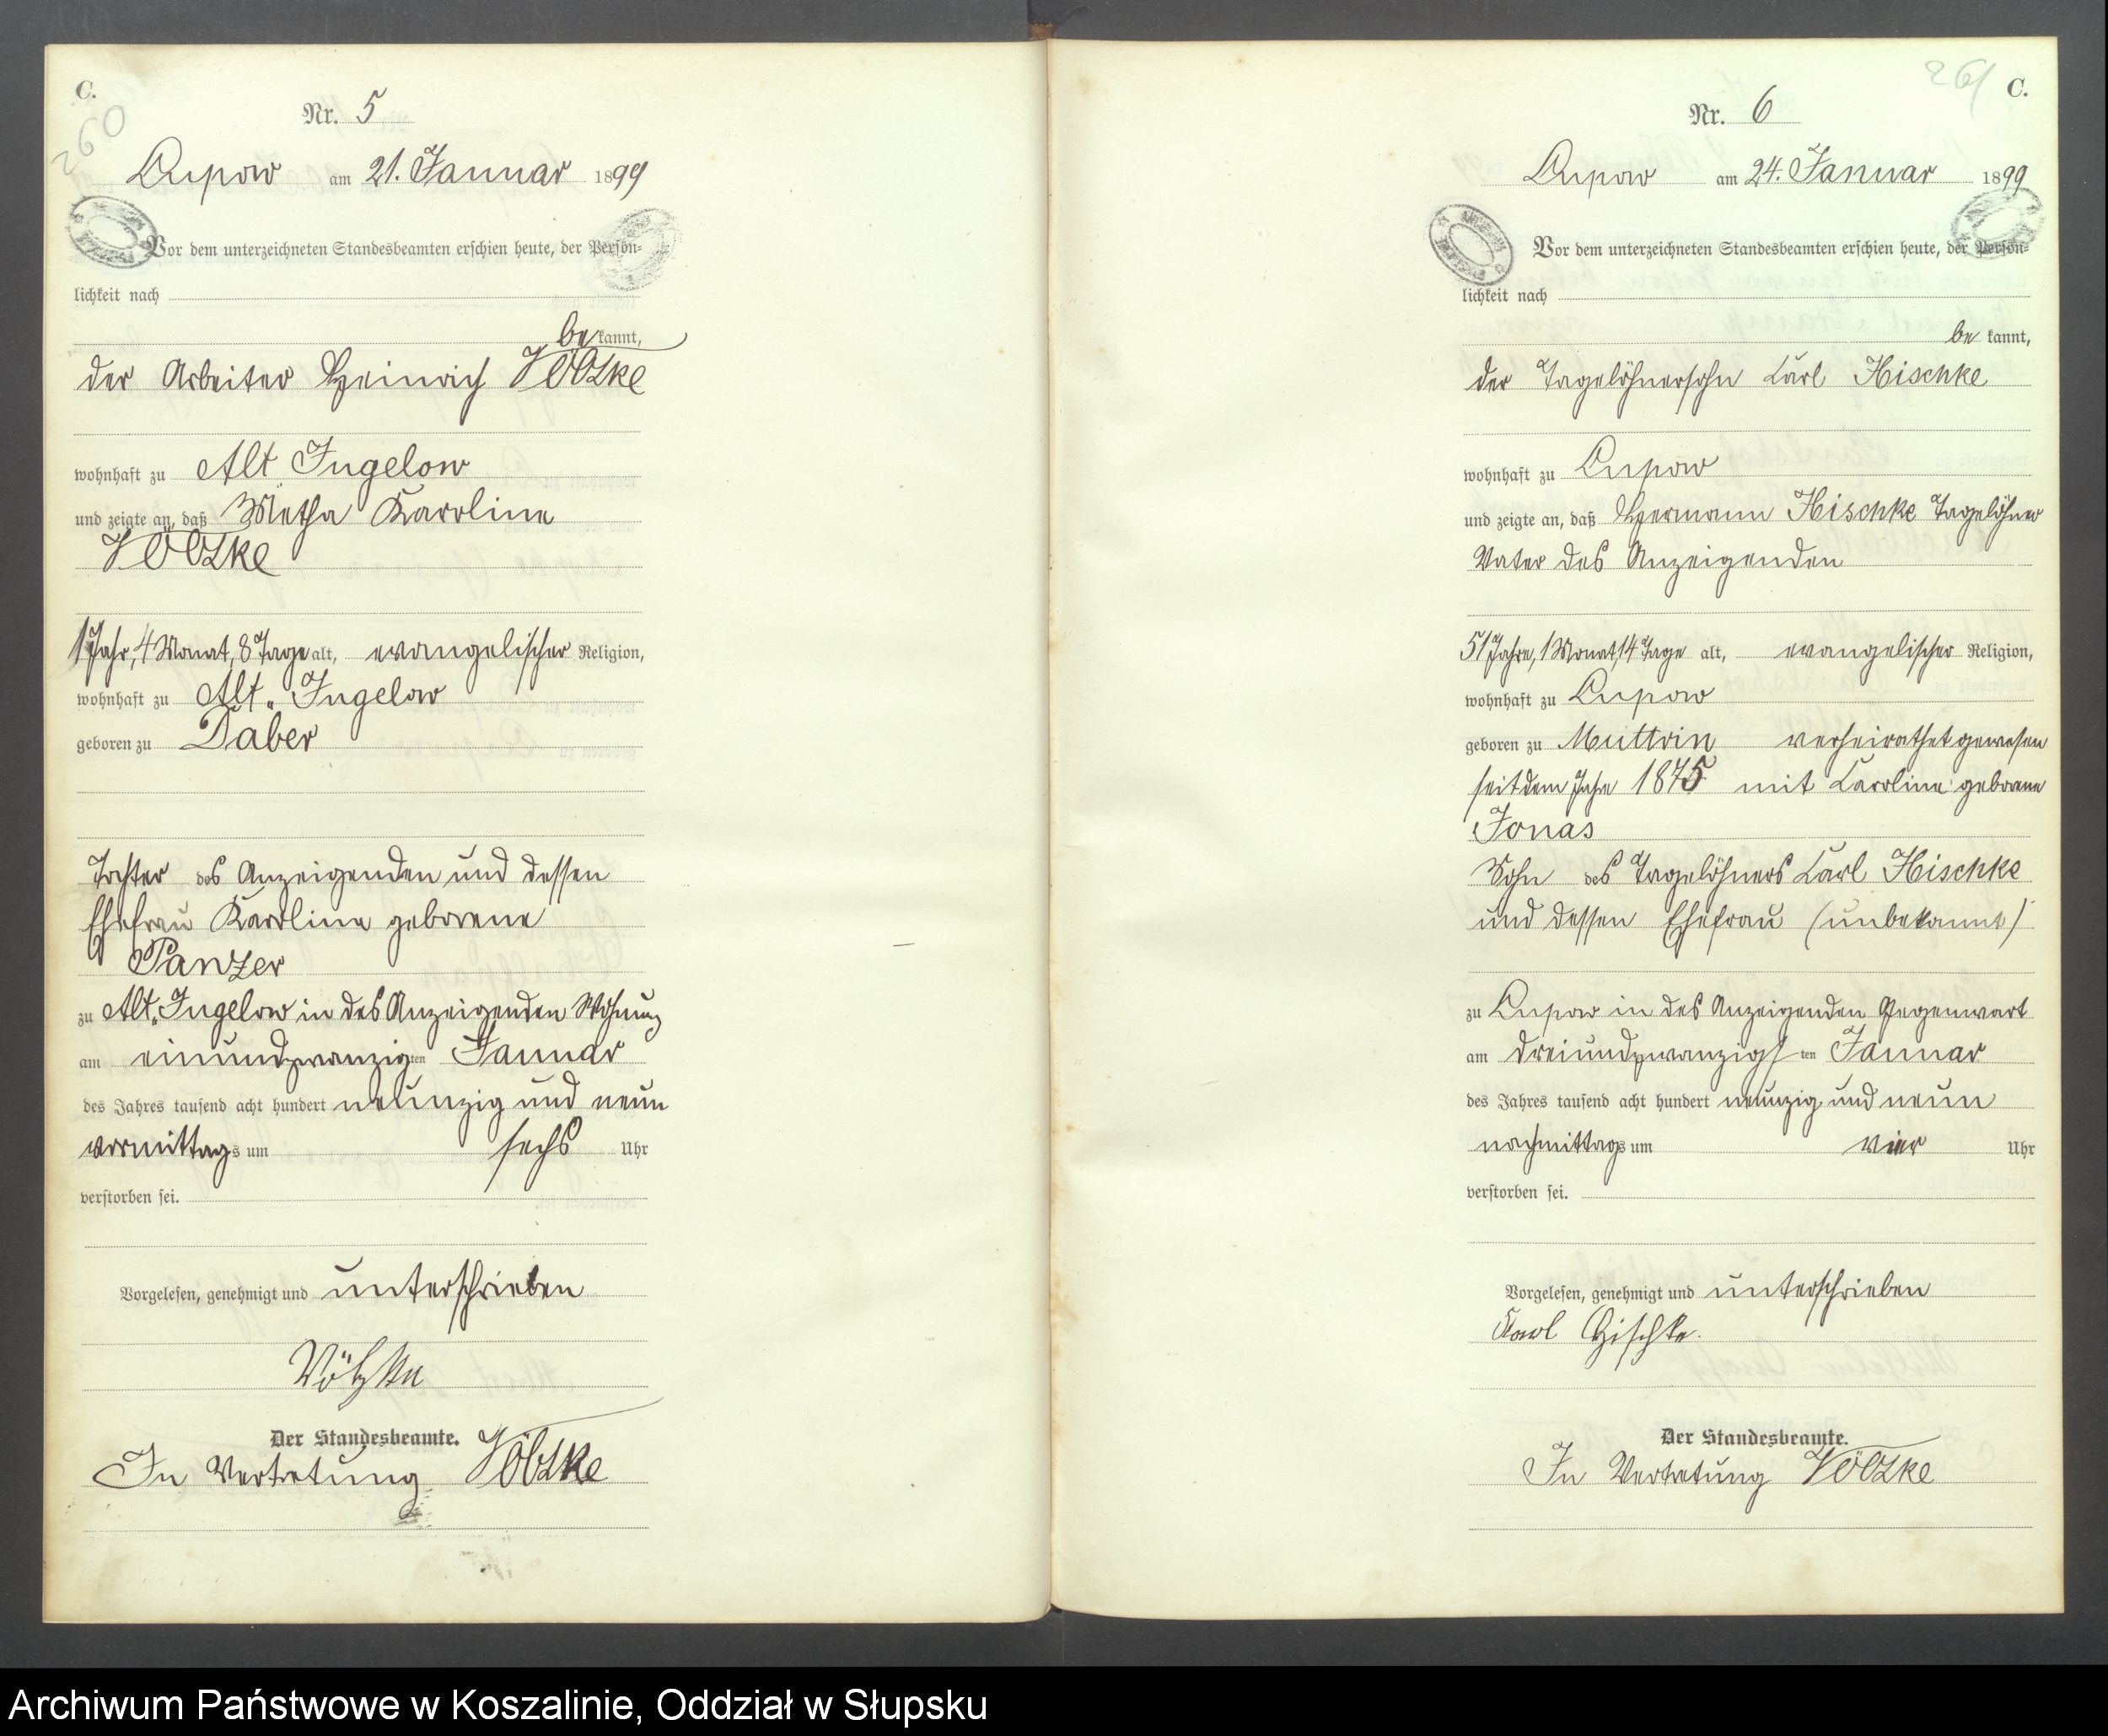 C.
260
Nr. 5
Lupow am 21. Januar 1899
Vor dem unterzeichneten Standesbeamten erschien heute, der Persön-
lichkeit nach
be kannt,
der Arbeiter Heinrich Völzke
wohnhaft zu Alt Jugelow
und zeigte an, daß Metha Karoline
Völzke
1 Jahr, 4 Monat, 8 Tage alt, evangelischer Religion,
wohnhaft zu Alt-Jugelow
geboren zu Daber
Tochter des Anzeigenden und dessen
Ehefrau Karoline geborene
Panzer
zu Alt-Jugelow in des Anzeigenden Wohnung
am einundzwanzigten Januar
des Jahres tausend acht hundert neunzig und neun
vormittags um sechs Uhr
verstorben sei.
Vorgelesen, genehmigt und unterschrieben
Völzke
Der Standesbeamte.
In Vertretung Völzke
261 C.
Nr. 6
Lupow am 24. Januar 1899
Vor dem unterzeichneten Standesbeamten erschien heute, der Persön-
lichkeit nach
be kannt,
der Tagelöhnersohn Carl Hischke
wohnhaft zu Lupow
und zeigte an, daß Hermann Hischke Tagelöhner
Vater des Anzeigenden
51 Jahre, 1 Monat, 14 Tage alt, evangelischer Religion,
wohnhaft zu Lupow
geboren zu Muttrin verheirathet gewesen
seit dem Jahre 1875 mit Caroline geborene
Jonas
Sohn des Tagelöhners Carl Hischke
und dessen Ehefrau (unbekannt)
zu Lupow in des Anzeigenden Gegenwart
am dreiundzwanzigsten Januar
des Jahres tausend acht hundert neunzig und neun
nachmittags um vier Uhr
verstorben sei.
Vorgelesen, genehmigt und unterschrieben
Karl Hischke.
Der Standesbeamte.
In Vertretung Völzke
Archiwum Państwowe w Koszalinie, Oddział w Słupsku